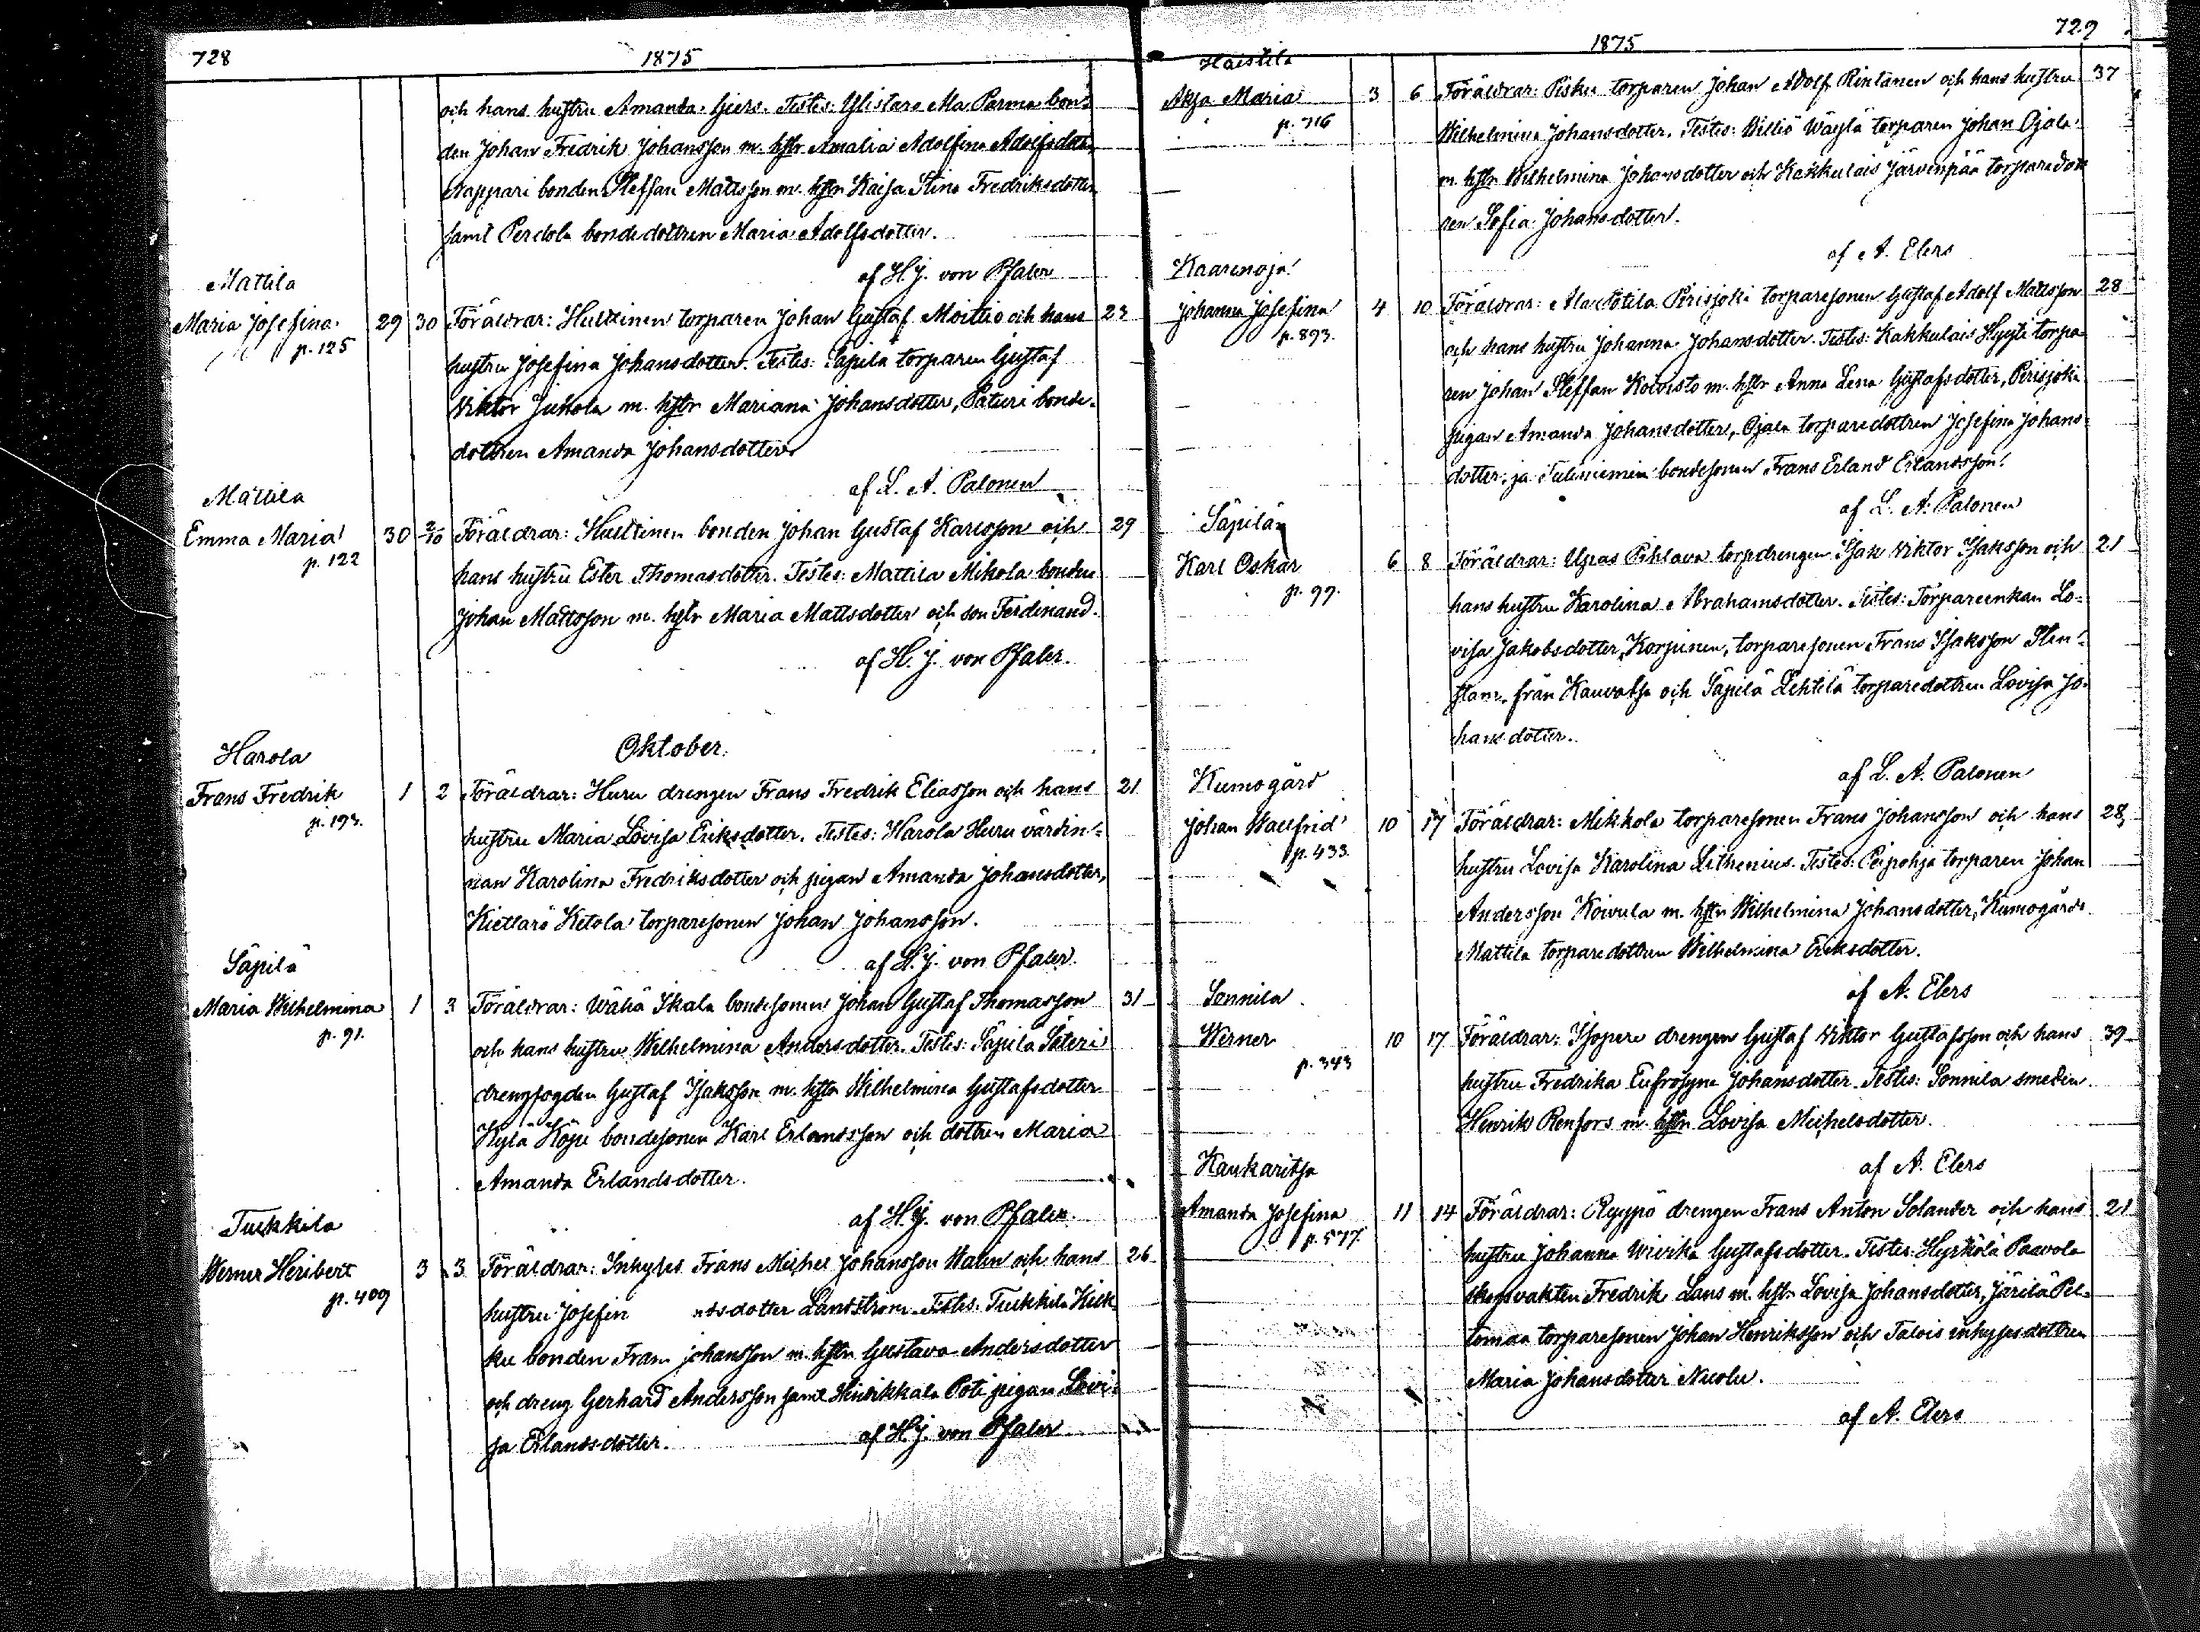 728
1875
och hans hustru Amanda Giers. Testes: Ylistaro Ala Parma bon-
den Johan Fredrik Johansson m. hstr Amalia Adolfina Adolfsdott.
Nappari bonden Steffan Mattsson m. hstr Kaisa Stina Fredriksdotter
samt Perdola bondedottren Maria Adolfsdotter.
af H.J. von Pfaler
Mattila
Maria Josefina 29 30 Föräldrar: Hultinen torparen Johan Gustaf Moittio och hans 23
p. 125
hustru Josefina Johansdotter. Testes: Säpilä torparen Gustaf
Viktor Jukola m. hstr Mariana Johansdotter, Paturi bonde-
dottren Amanda Johansdotter
af L. A. Palonen
Mattila
Emma Maria 30 2/10 Föräldrar: Hultinen bonden Johan Gustaf Karlsson och 29
p. 122
hans hustru Ester Thomasdotter. Testes: Mattila Mikola bonden
Johan Mattsson m. hstr Maria Mattsdotter och son Ferdinand.
af H. J. von Pfaler.
Oktober.
Harola
Frans Fredrik 1 2 Föräldrar: Huru drengen Frans Fredrik Eliasson och hans 21
p. 193.
hustru Maria Lovisa Eriksdotter. Testes: Harola Huru värdin-
nan Karolina Fredriksdotter och pigan Amanda Johansdotter,
Kiettarö Ketola torparesonen Johan Johansson.
af H.J. von Pfaler.
Säpilä
Maria Wilhelmina 1 3 Föräldrar: Wähä Skala bondesonen Johan Gustaf Thomasson 31
p. 91.
och hans hustru Wilhelmina Andersdotter. Testes: Säpilä Säteri
drengfogden Gustaf Isaksson m. hstr Wilhelmina Gustafsdotter
Kylä Köpi bondesonen Karl Erlandsson och dottren Maria
Amanda Erlandsdotter.
af H.J. von Pfaler.
Tuckkila
Werner Heribert 3 3 Föräldrar: Inhyses Frans Michel Johansson Malin och hans 26
p. 409
hustru Josefin ntsdotter Landström. Testes: Tuckkila Kilk
ku bonden Frans Johansson m. hstr Gustava Andersdotter
och dreng Gerhard Andersson samt Kirikkala Poti pigan Lovi-
sa Erlandsdotter. af H.J. von Pfaler
729
1875
Haistila
Ahja Maria 3 6 Föräldrar: Pisku torparen Johan Adolf Rintanen och hans hustru 37
p. 716
Wilhelmina Johansdotter. Testes: Williö Wäylä torparen Johan Ojala
m. hstr Wilhelmina Johansdotter och Kakkulais Järvenpää torparedott
ren Sofia Johansdotter.
af A. Elers
Kaarenoja
Johanna Josefina 4 10 Föräldrar: Ala Sotila Pirisjoki torparesonen Gustaf Adolf Mattsson 28
p. 893.
och hans hustru Johanna Johansdotter. Testes: Kakkulais Hyyti torpa-
ren Johan Steffan Koivisto m. hstr Anna Lena Gustafsdotter, Pirisjoki
pigan Amanda Johansdotter, Ojala torparedottren Josefina Johans-
dotter, ja Tulimiemin bondesonen Frans Erland Erlandsson.
af L. A. Palonen
Säpilä
Karl Oskar 6 8 Föräldrar: Upas Pihlava torpdrengen Isak Viktor Isaksson och 21
p. 99.
hans hustru Karolina Abrahamsdotter. Testes: Torpareenkan Lo-
visa Jakobsdotter Korpinen, torparesonen Frans Isaksson Sten-
stam, från Kauvatsa och Säpilä Lehtilä torparedottren Lovisa Jo-
hansdotter.
af L. A. Palonen
Kumogård
Johan Walfrid 10 17 Föräldrar: Mikkola torparesonen Frans Johansson och hans 28
p. 433.
hustru Lovisa Karolina Lithenius. Testes: Peipohja torparen Johan
Andersson Koivula m. hstr Wilhelmina Johansdotter, Kumogårds
Mattila torparedottren Wilhelmina Eriksdotter.
af A. Elers
Sonnila
Werner 10 17 Föräldrar: Isopere drengen Gustaf Viktor Gustafsson och hans 39
p. 343
hustru Fredrika Eufrosyne Johansdotter. Testes: Sonnila smeden
Henrik Renfors m. hstr Lovisa Michelsdotter.
af A. Elers
Kaukaritsa
Amanda Josefina 11 14 Föräldrar: Ryyppö drengen Frans Anton Solander och hans 21
p. 577.
hustru Johanna Wivika Gustafsdotter. Testes: Hyrkölä Paavola
skogsvakten Fredrik Lans m. hstr Lovisa Johansdotter, Järilä Pel-
tomaa torparesonen Johan Henriksson och Talois inhysesdottren
Maria Johansdotter Nurlu.
af A. Elers